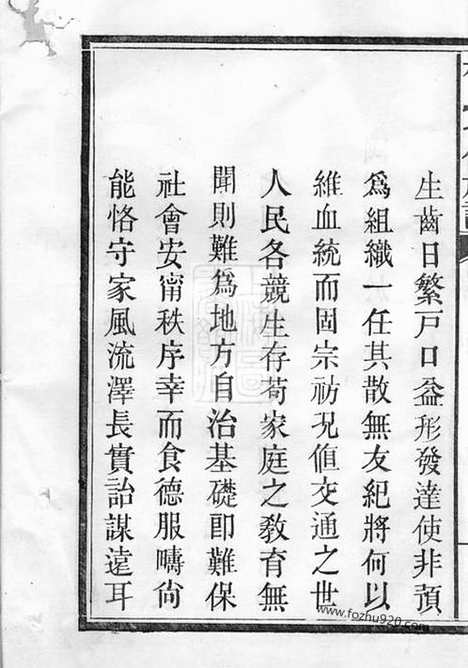 生齒日繁戸口益形發達使非預
爲組織一任其散無友紀將何以
維血統而固宗祊況值交通之世
人民各競生存苟家庭之敎育無
聞則難爲地方自治基礎卽難保
社會安甯秩序幸而食德服疇尙
能恪守家風流澤長實詒謀遠耳
www.fozhu920.com